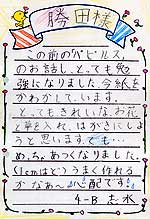 勝田様
この前の「ペピルス」
のお話し、とっても勉
強になりました。今紙を
かわかしています。
とってもきれいな、お花
と草を入れ、はがきにしよ
うと思いますでも…
め、ちゃあつくなりました。
(1cmほど)うまく作れる
かなあ~心配です。
4-B 志水